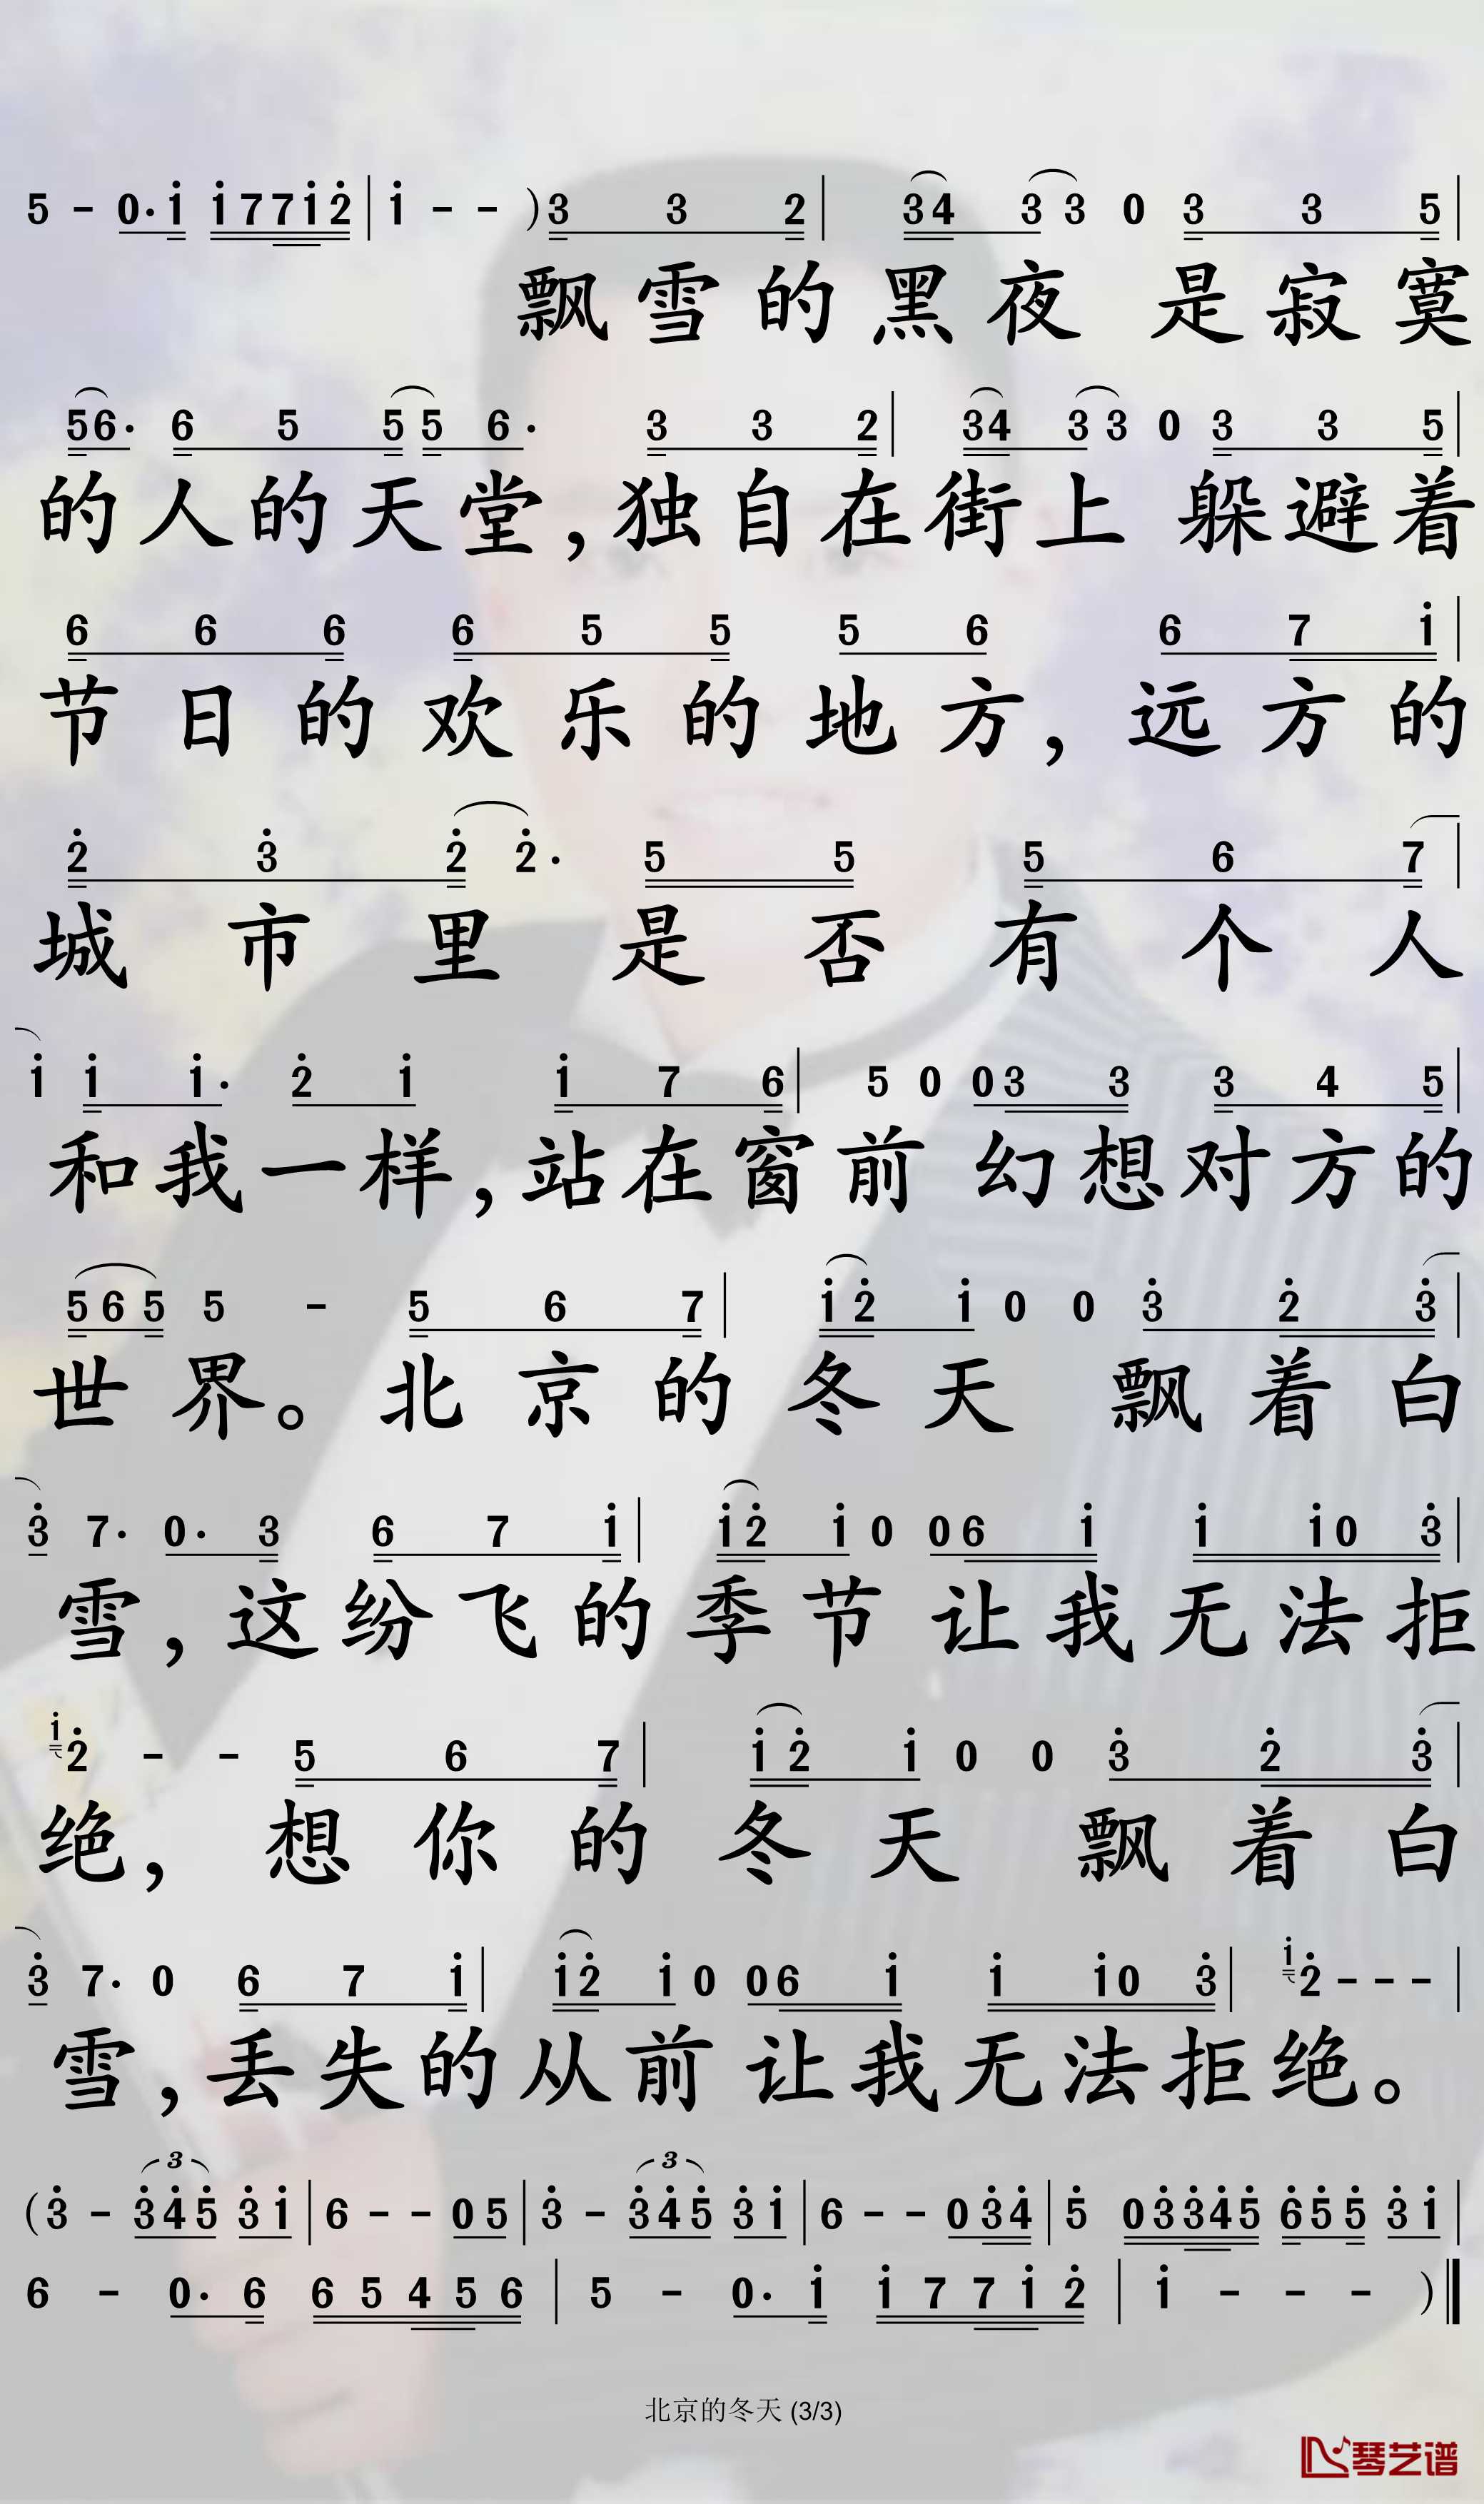 5 - 0·i i77i2|i - - )3 3 2| 34 3 3 0 3 3 5|
飘雪的黑夜 是寂寞
56· 6 5 5 5 6· 3 3 2| 34 3 3 0 3 3 5|
的人的天堂,独自在街上 躲避着
6 6 6 6 5 5 5 6 6 7 i|
节日的欢乐的地方,远方的
2 3 2 2· 5 5 5 6 7|
城市里是否有个人
i i i· 2 i i 7 6| 5 0 0 3 3 3 4 5|
和我一样,站在窗前 幻想对方的
5 6 5 5 - 5 6 7| i 2 i 0 0 3 2 3|
世界。北京的冬天 飘着白
3 7· 0· 3 6 7 i| i 2 i 0 0 6 i i i 0 3|
雪,这纷飞的季节 让我无法拒
i 2 - - 5 6 7| i 2 i 0 0 3 2 3|
绝,想你的冬天 飘着白
3 7· 0 6 7 i| i 2 i 0 0 6 i i i 0 3| i 2 - - -|
雪,丢失的从前 让我无法拒绝。
3 3
(3 - 3 4 5 3 i|6 - - 0 5|3 - 3 4 5 3 i|6 - - 0 3 4|5 0 3 3 4 5 6 5 5 3 i|
6 - 0· 6 6 5 4 5 6| 5 - 0· i i 7 7 i 2| i - - - )||
北京的冬天 (3/3)
琴艺谱